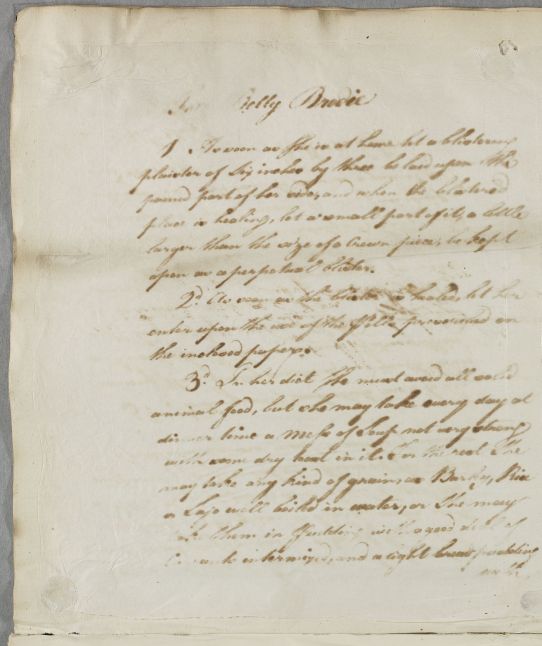 For Nelly Brodie
1 As soon as she is at home let a blistering
plaister of Six inches by three be laid upon the
pained part of her side, and when the blistered
place is healing, let a small part of it, a little
larger than the size of a Crown piece, be kept
open as a perpetual blister.
2d As soon as the blister is healed, let her
enter upon the use of the Pills prescribed on
the inclosed paper.
3d In her diet She must avoid all solid
animal food, but she may take every day at
dinner time a Mess of Soup not very strong
with some dry toast in it. For the rest She
may take any kind of grains as Barley, Rice
or Sago well boild in water, or She may
take them in Pudding with a good deal of
Currants intermixed, and a light bread pudding